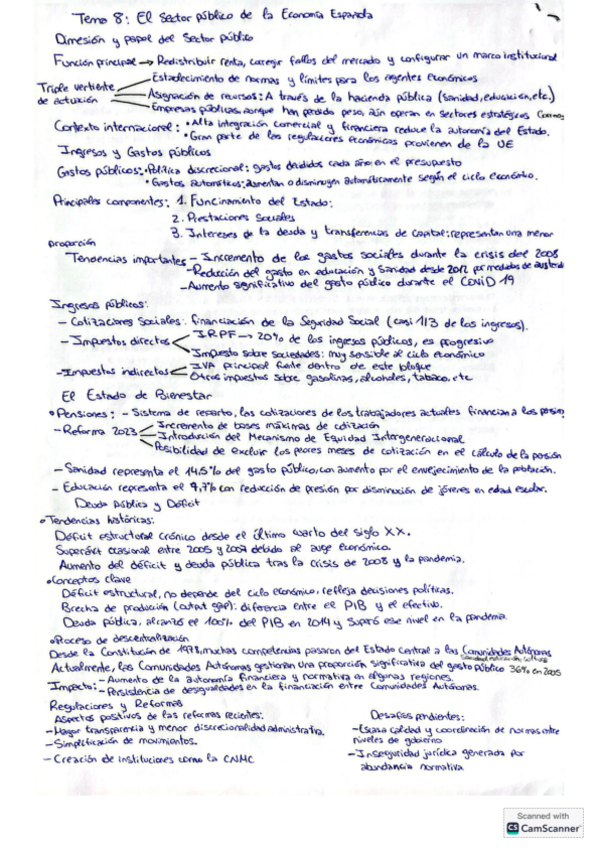 Tema 8: El Sector público de la Economía Española
Dimesión y papel del Sector público
Función principal → Redistribuir renta, corregir fallos del mercado y configurar un marco institucional
Triple vertiente de actuación
Establecimiento de normas y límites para los agentes económicos
Asignación de recursos: A través de la hacienda pública (sanidad, educación, etc.)
Empresas públicas, aunque han perdido peso, aún operan en sectores estratégicos Correos
Contexto internacional: • Alta integración comercial y financiera reduce la autonomía del Estado.
• Gran parte de las regulaciones económicas provienen de la UE
Ingresos y Gastos públicos
Gastos públicos: • Política discrecional: gastos decididos cada año en el presupuesto
• Gastos automáticos: aumentan o disminuyen automáticamente según el ciclo económico.
Principales componentes: 1. Funcinamiento del Estado:
2. Prestaciones Sociales
3. Intereses de la deuda y transferencias de capital: representan una menor
proporción
Tendencias importantes – Incremento de los gastos sociales durante la crisis del 2008
– Reducción del gasto en educación y Sanidad desde 2012 por medidas de austeri
– Aumento significativo del gasto público durante el COVID 19
Ingresos públicos:
– Cotizaciones Sociales: financiación de la Seguridad Social (casi 1/3 de los ingresos).
– Impuestos directos
I.R.P.F → 20% de los ingresos públicos, es progresivo
Impuesto sobre sociedades: muy sensible al ciclo económico
– Impuestos indirectos
IVA principal fuente dentro de este bloque
Otros impuestos sobre gasolinas, alcoholes, tabaco, etc
El Estado de Bienestar
• Pensiones: – Sistema de reparto, las cotizaciones de los trabajadores actuales financian a los pension
– Reforma 2023
Incremento de bases máximas de cotización
Introducción del Mecanismo de Equidad Intergeneracional
Posibilidad de excluir los peores meses de cotización en el cálculo de la pensión
– Sanidad representa el 14,5% del gasto público, con aumento por el envejecimiento de la población.
– Educación representa el 9,7% con reducción de presión por disminución de jóvenes en edad escolar.
Deuda Pública y Déficit
• Tendencias históricas:
Déficit estructural crónico desde el último cuarto del siglo XX.
Superávit ocasional entre 2005 y 2007 debido al auge económico.
Aumento del déficit y deuda pública tras la crisis de 2008 y la pandemia.
• Conceptos clave
Déficit estructural, no depende del ciclo económico, refleja decisiones políticas.
Brecha de producción (output gap): diferencia entre el PIB y el efectivo.
Deuda pública, alcanzó el 100% del PIB en 2014 y Superó ese nivel en la pandemia.
• Proceso de descentralización
Desde la Constitución de 1978, muchas competencias pasaron del Estado central a las Comunidades Autónomas
Sanidad, educación, cultura
Actualmente, las Comunidades Autónomas gestionan una proporción significativa del gasto público 36% en 2005
Impacto: – Aumento de la autonomía financiera y normativa en algunas regiones.
– Persistencia de desigualdades en la financiación entre Comunidades Autónomas.
Regulaciones y Reformas
Aspectos positivos de las reformas recientes:
– Mayor transparencia y menor discrecionalidad administrativa.
– Simplificación de movimientos.
– Creación de instituciones como la CNMC
Desafíos pendientes:
– Escasa calidad y coordinación de normas entre
niveles de gobierno
– Inseguridad jurídica generada por
abundancia normativa
Scanned with
CS CamScanner